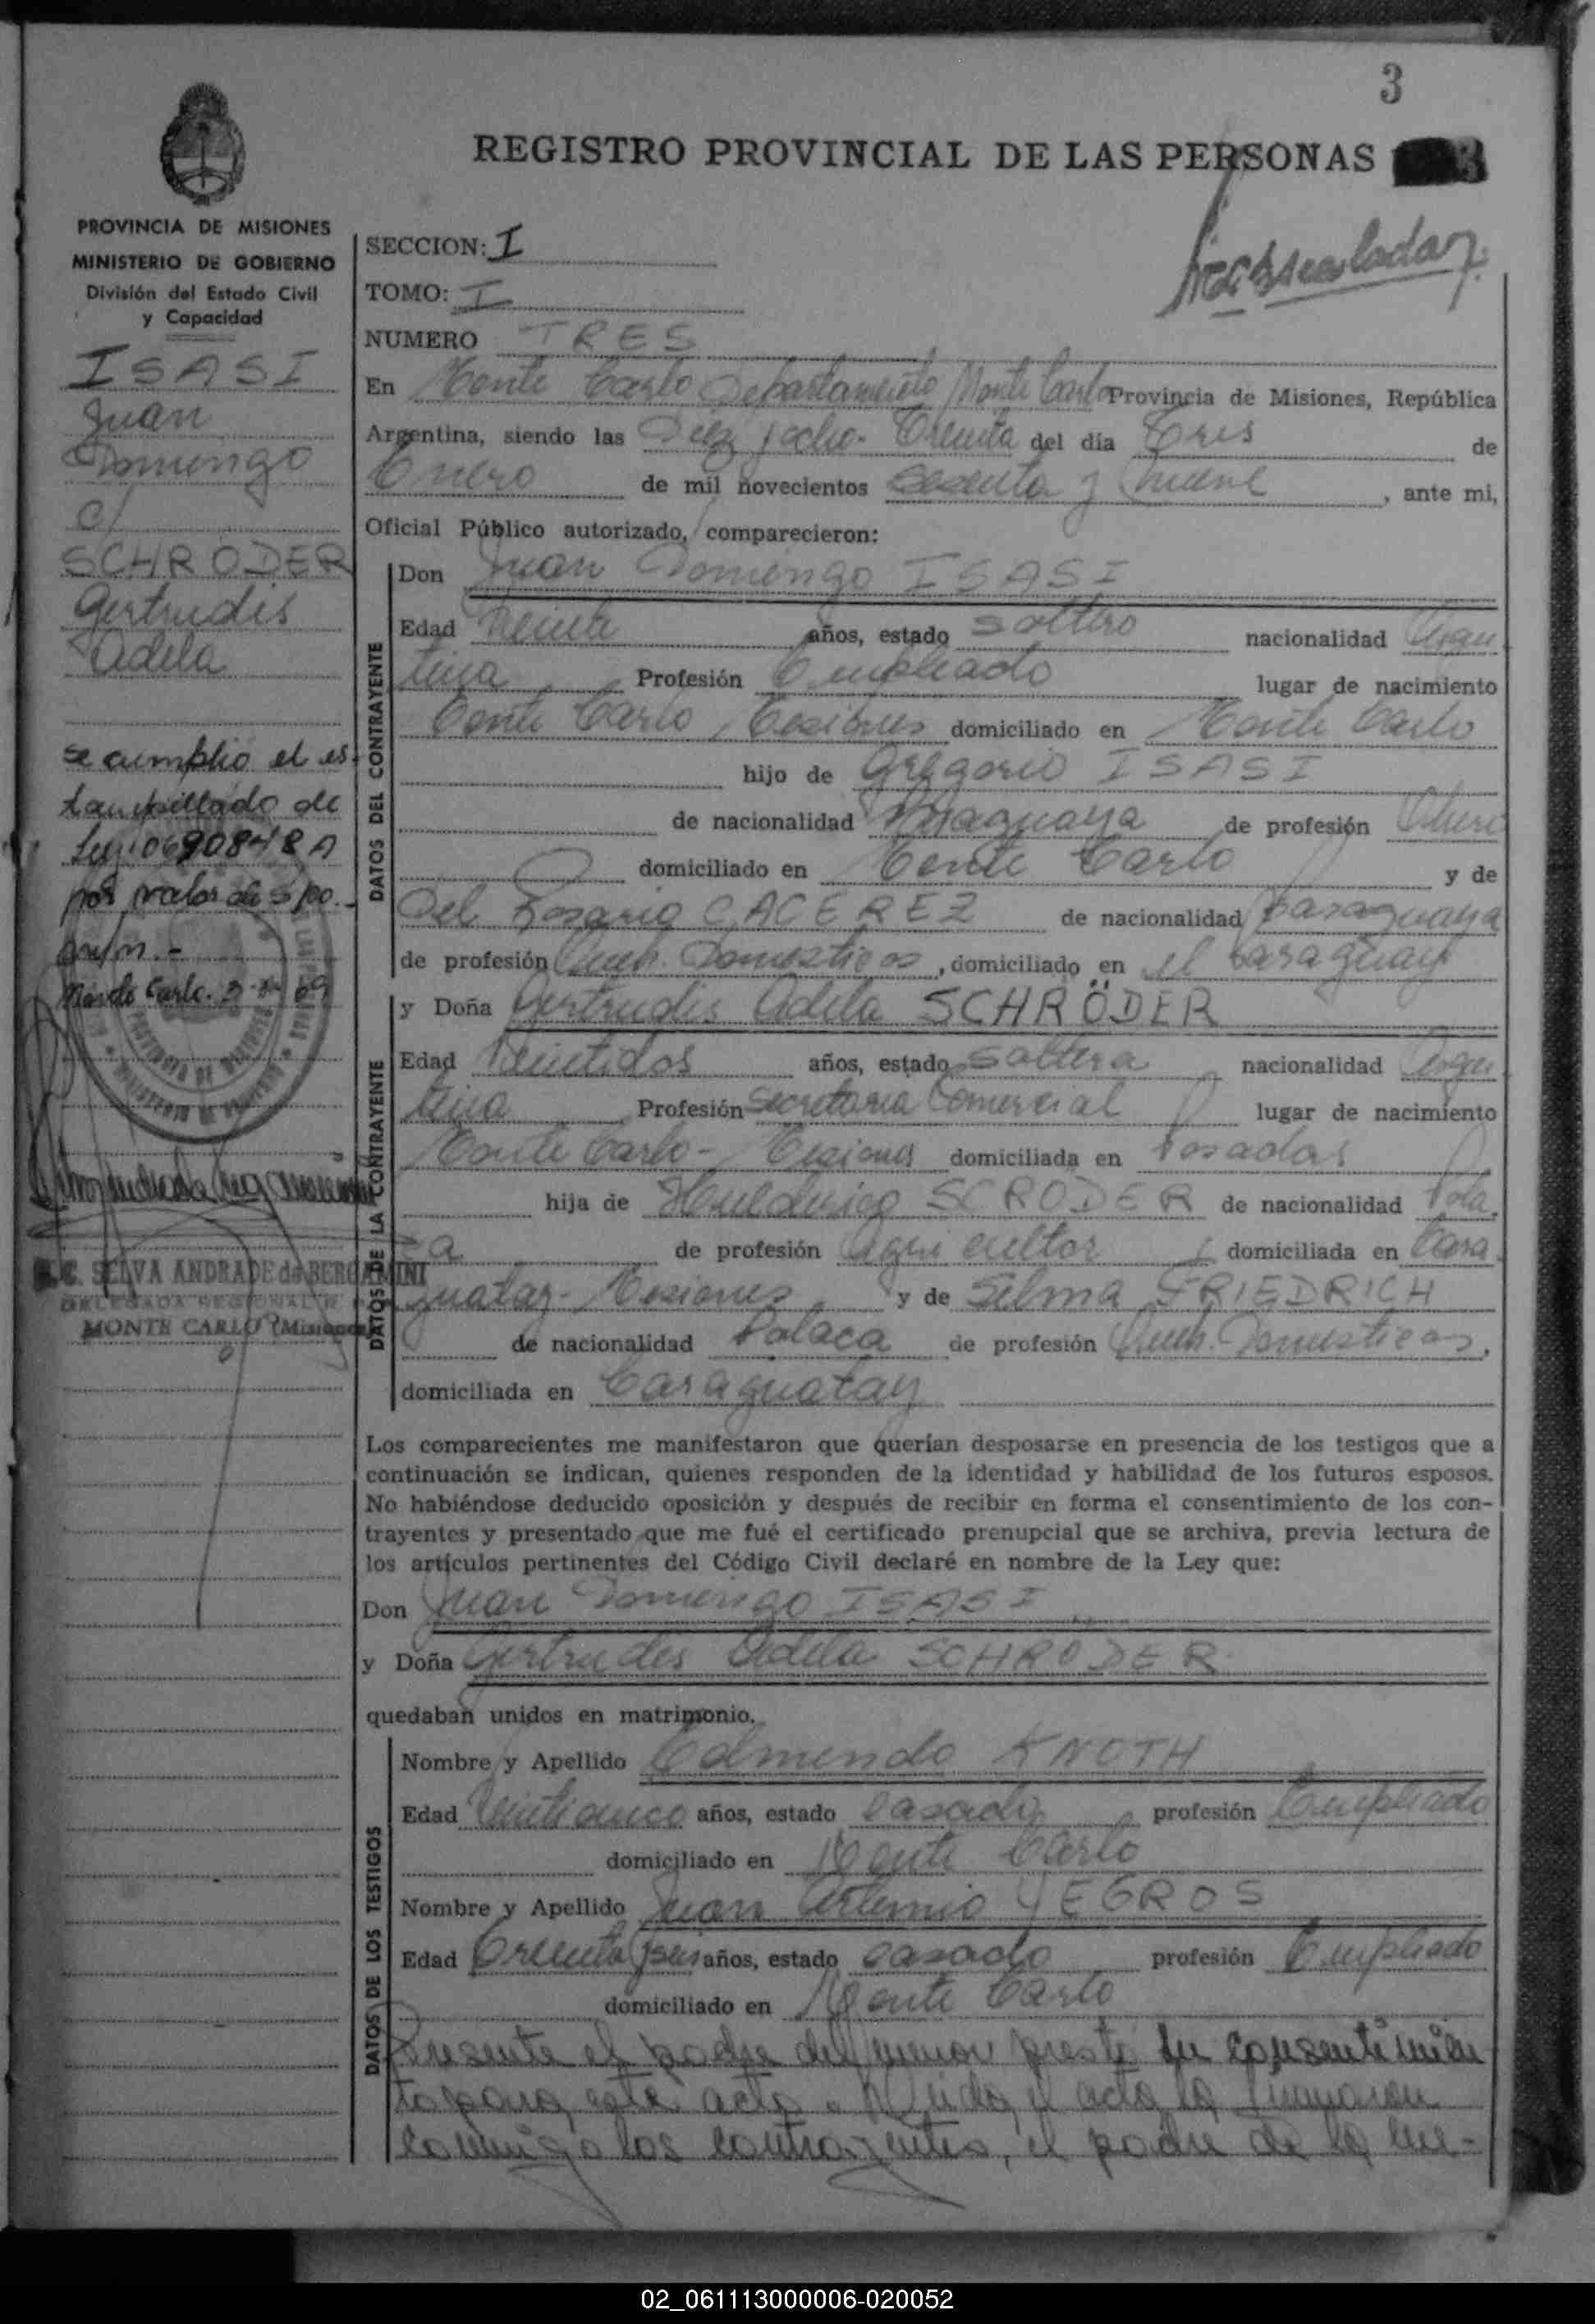 3
REGISTRO PROVINCIAL DE LAS PERSONAS
3
PROVINCIA DE MISIONES
MINISTERIO DE GOBIERNO
División del Estado Civil
y Capacidad
ISASI
Juan
Domingo
c/
SCHRÖDER
Gertrudis
Adela
se cumplió el es
tampillado de
Ley 0690848 A
por valor de $ 100.-
m/n.-
Monte Carlo. 3-1-69
C. SELVA ANDRADE de BERGAMINI
DELEGADA REGIONAL
MONTE CARLO (Misiones)
SECCION: I
TOMO: I
NUMERO TRES
En Monte Carlo Departamento Monte Carlo Provincia de Misiones, República
Argentina, siendo las Diez y ocho. Treinta del día Tres de
Enero de mil novecientos sesenta y nueve, ante mi,
Oficial Público autorizado, comparecieron:
DATOS DEL CONTRAYENTE
Don Juan Domingo ISASI
Edad Treinta años, estado soltero nacionalidad Argen
tina Profesión Empleado lugar de nacimiento
Monte Carlo, Misiones domiciliado en Monte Carlo
hijo de Gregorio ISASI
de nacionalidad Paraguaya de profesión
domiciliado en Monte Carlo y de
Del Rosario CACEREZ de nacionalidad Paraguaya
de profesión Queh. Domesticos, domiciliado en el Paraguay
DATOS DE LA CONTRAYENTE
y Doña Gertrudis Adela SCHRÖDER
Edad Veintidos años, estado soltera nacionalidad Argen
tina Profesión Secretaria Comercial lugar de nacimiento
Monte Carlo - Misiones domiciliada en Posadas
hija de Hulderico SCRODER de nacionalidad Pola
ca de profesión Agricultor, domiciliada en Cara
guatay - Misiones y de Selma FRIEDRICH
de nacionalidad Polaca de profesión Queh. Domesticos,
domiciliada en Caraguatay
Los comparecientes me manifestaron que querían desposarse en presencia de los testigos que a
continuación se indican, quienes responden de la identidad y habilidad de los futuros esposos.
No habiéndose deducido oposición y después de recibir en forma el consentimiento de los con-
trayentes y presentado que me fué el certificado prenupcial que se archiva, previa lectura de
los artículos pertinentes del Código Civil declaré en nombre de la Ley que:
Don Juan Domingo ISASI
y Doña Gertrudes Adela SCHRODER
quedaban unidos en matrimonio.
DATOS DE LOS TESTIGOS
Nombre y Apellido Edmundo KNOTH
Edad Veinticinco años, estado casado profesión Empleado
domiciliado en Monte Carlo
Nombre y Apellido Juan Artemio YEGROS
Edad Treinta y seis años, estado casado profesión Empleado
domiciliado en Monte Carlo
Presente el padre del menor presta su consentimien
to para este acto. Leida el acta la firmaron
conmigo los contrayentes, el padre de la me-
02_061113000006-020052